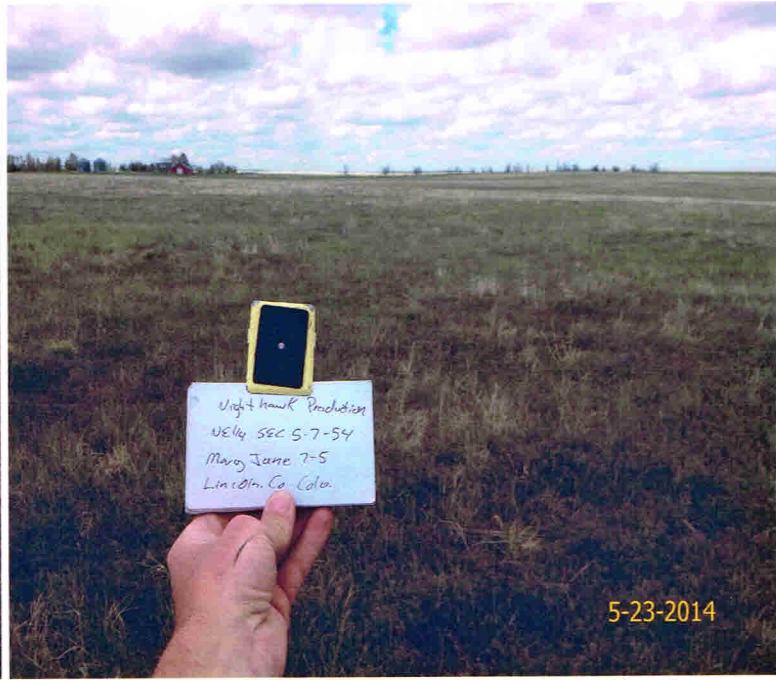 Nighthawk Production
NE1/4 SEC 5-7-54
Mary Jane 7-5
Lincoln. Co Colo.
5-23-2014